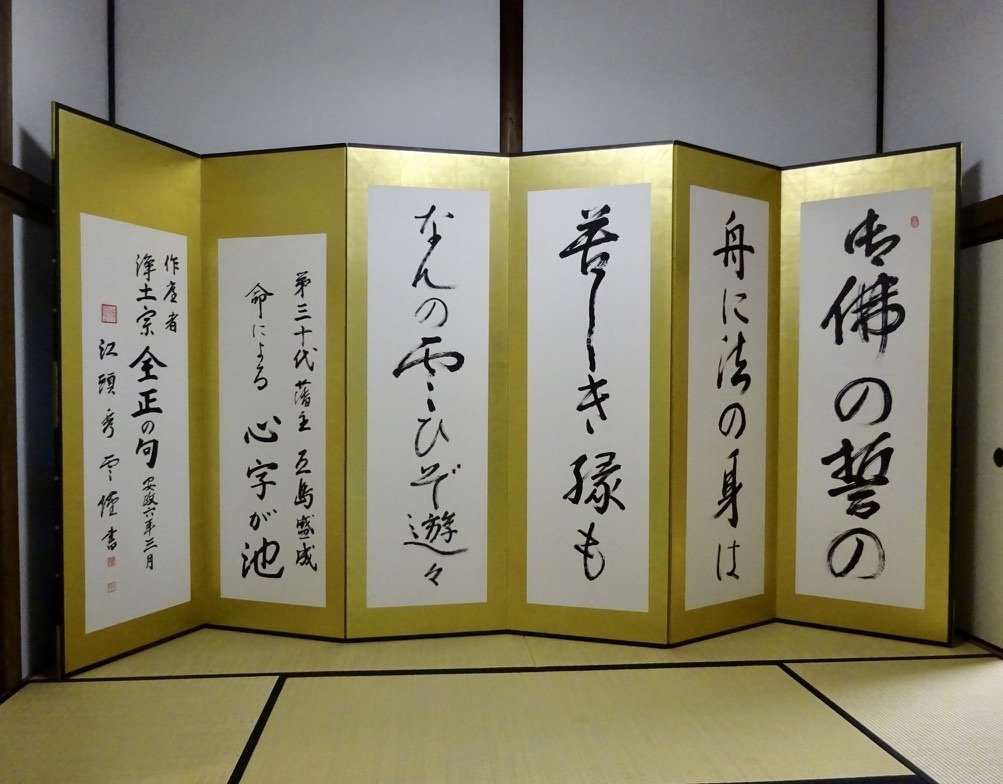 御佛の誓の
舟に法の身は
苦しき縁も
なんの ひぞ遊々
第三十代藩主 五島盛成
命による 心字が池
作庭者
浄土宗 全正の句 安政六年三月
江頭秀雲 書